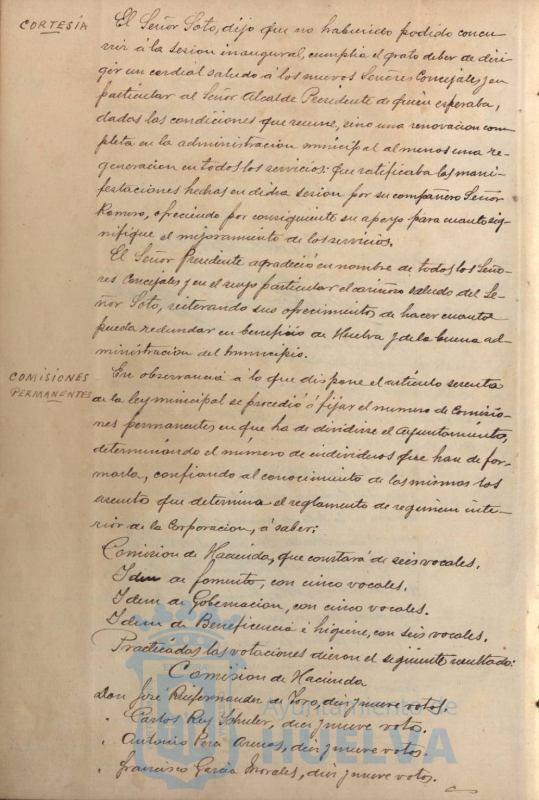 CORTESÍA
El Señor Soto, dijo que no habiendo podido concu-
rrir á la sesion inaugural, cumplia el grato deber de diri-
gir un cordial saludo á los nuevos Señores Concejales y en
particular al Señor Alcalde Presidente de quien esperaba,
dadas las condiciones que reune, sino una renovacion com-
pleta en la administracion municipal al menos una re-
generacion en todos los servicios: que ratificaba las mani-
festaciones hechas en dicha sesion por su compañero Señor
Romero, ofreciendo por consiguiente su apoyo para cuanto sig-
nifique el mejoramiento de los servicios.
El Señor Presidente agradeció en nombre de todos los Seño-
res Concejales y en el suyo particular el cariñoso saludo del Se-
ñor Soto, reiterando sus ofrecimientos de hacer cuanto
pueda redundar en beneficio de Huelva y de la buena ad-
ministracion del municipio.
COMISIONES
PERMANENTES
En observancia á lo que dispone el artículo sesenta
de la ley municipal se procedió á fijar el numero de Comisio-
nes permanentes en que ha de dividirse el Ayuntamiento,
determinando el número de individuos que han de for-
marla, confiando al conocimiento de las mismas los
asuntos que determina el reglamento de regimen inte-
rior de la Corporacion, á saber;
Comision de Hacienda, que constará de seis vocales.
Idem de fomento, con cinco vocales.
Idem de Gobernacion, con cinco vocales.
Idem de Beneficencia é higiene, con seis vocales.
Practicadas las votaciones dieron el siguiente resultado:
Comision de Hacienda
Don José de Toro, diez y nueve votos.
" Carlos Rey Schuler, diez y nueve votos.
" Antonio Perez Arenas, diez y nueve votos.
" Francisco Garcia Morales, diez y nueve votos.
Ayuntamiento de
HUELVA